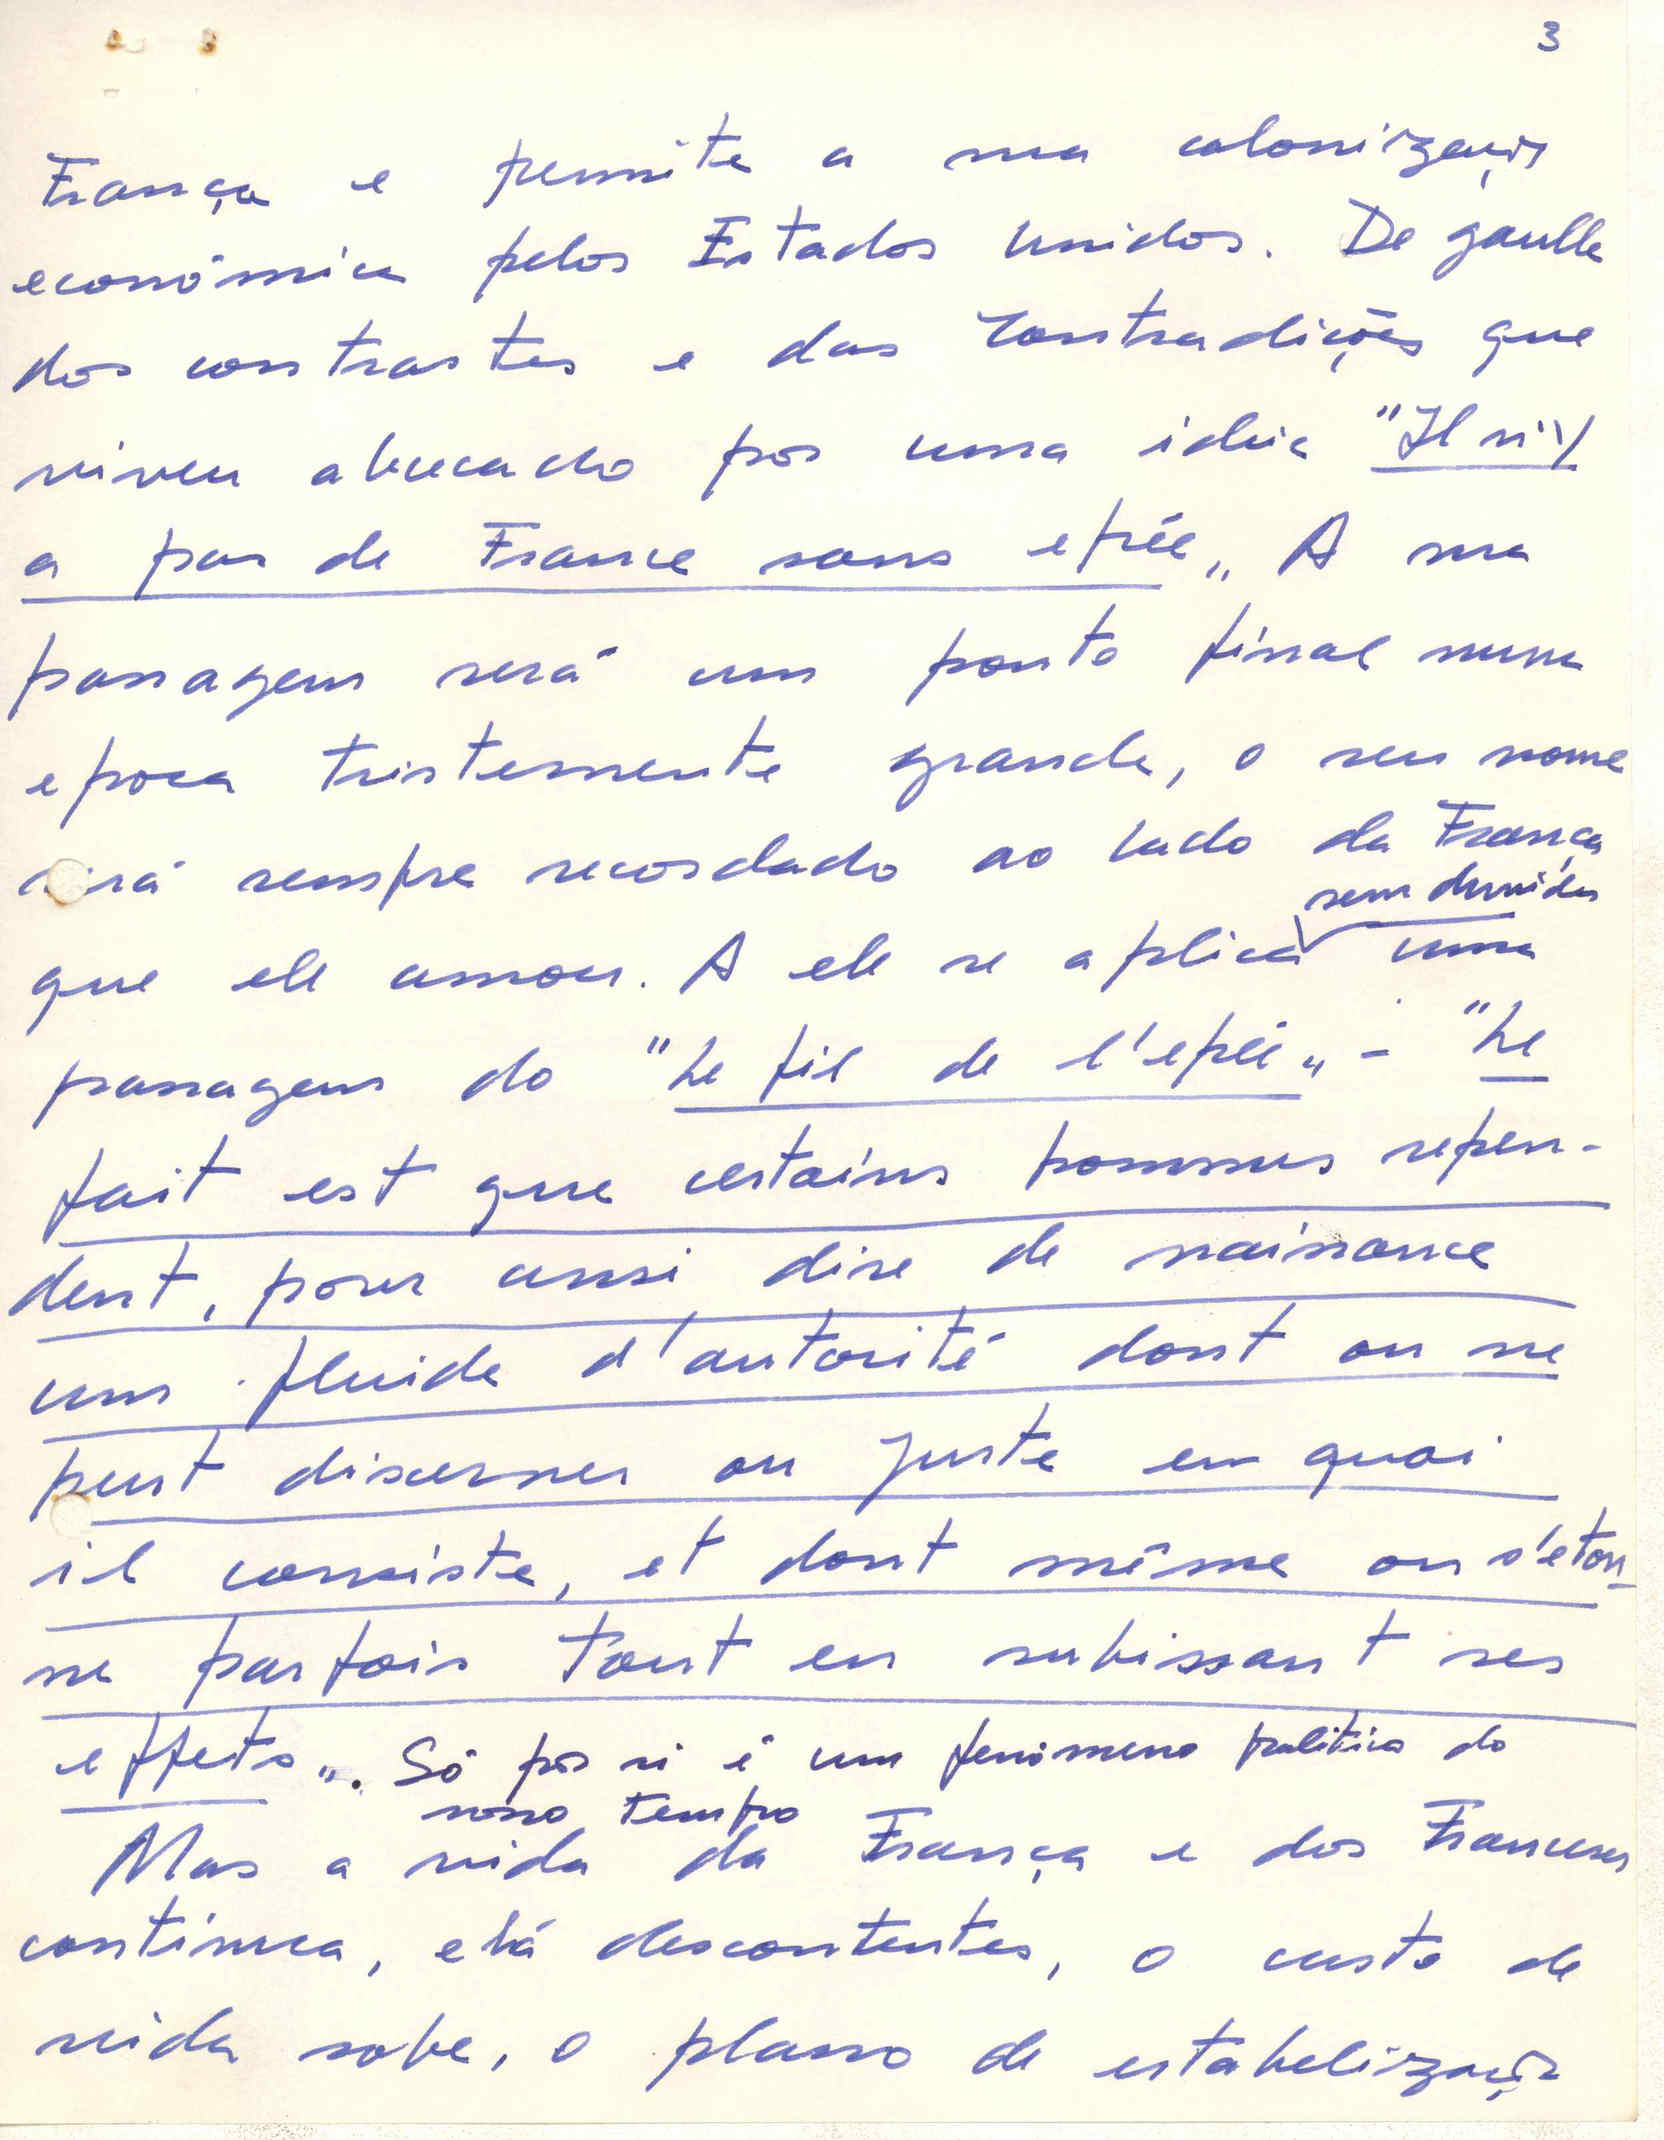 3
França e permite a sua colonização
económica pelos Estados Unidos. De Gaulle
dos contrastes e das contradições que
viveu abucado por uma ideia "Il n'y
a pas de France sans epée" A sua
passagem será um ponto final numa
epoca tristemente grande, o seu nome
virá sempre recordado ao lado da França
sem duvida
que ele amou. A ele se aplica uma
passagem do "Le fil de l'epée" - "Le
fait est que certains hommes repen-
dent, pour ainsi dire de naissance
um fluide d'autorité dont on ne
peut discerner au juste en quoi
il consiste, et dont même on s'eton-
ne parfois tout en subissant ses
effets". Só por si é um fenomeno politico do
nosso tempo
Mas a vida da França e dos Franceses
continua, e há descontentes, o custo de
vida sobe, o plano de estabelização